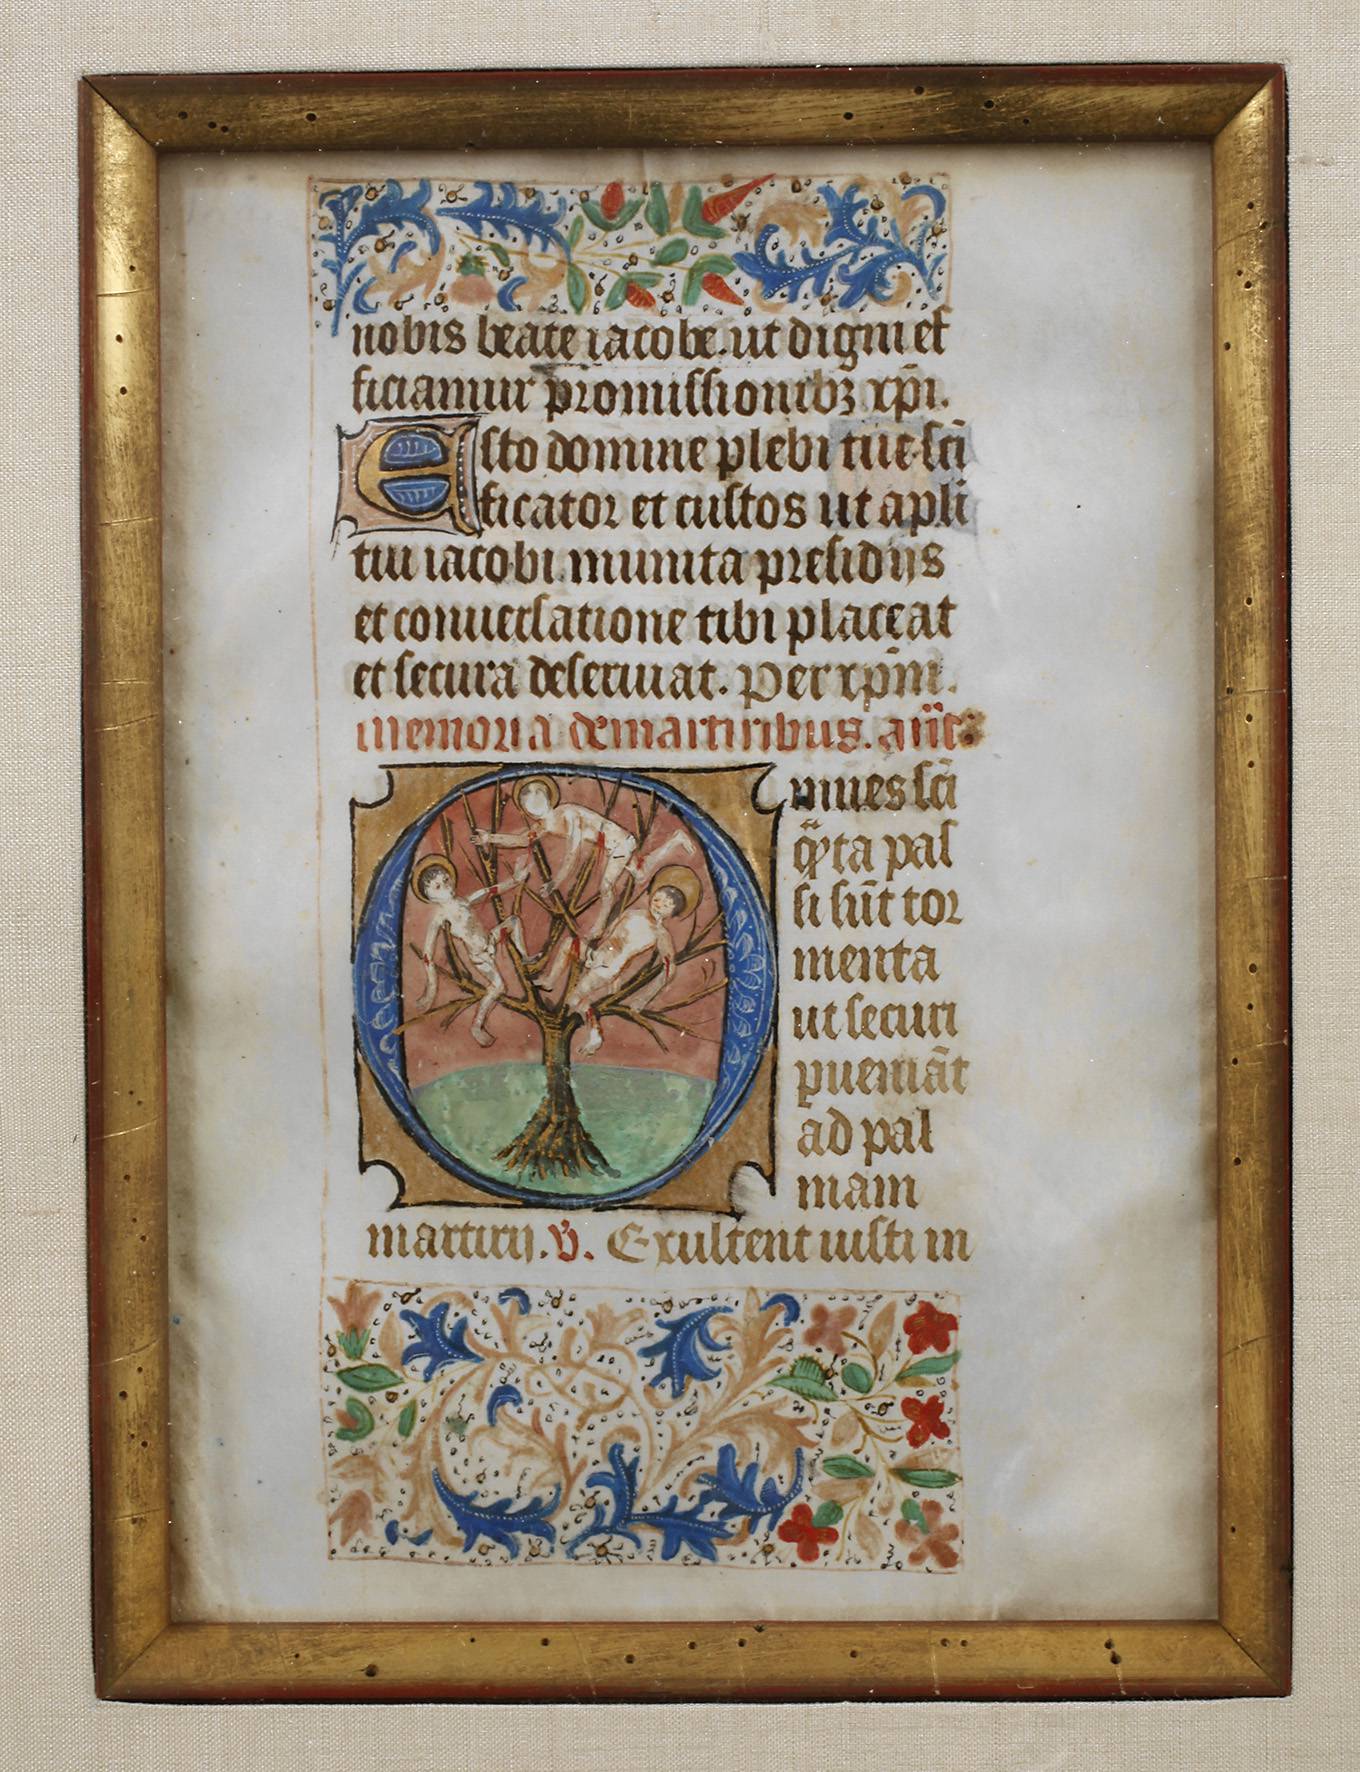 nobis beate iacobe. ut digni ef
ficiamur promissionibꝫ xp̄i.
Esto domine plebi tue sc̄i
ficator et custos ut apl̄i
tui iacobi. munita presidijs
et conuersatione tibi placeat
et secura deseruiat. Per xp̄m̄.
memoria de martiribus. an̄e
Omnes sc̄i
q̄̄ta pas
si sūt tor
menta
ut securi
pueniāt
ad pal
mam
martirij. V̄. Exultent iusti in